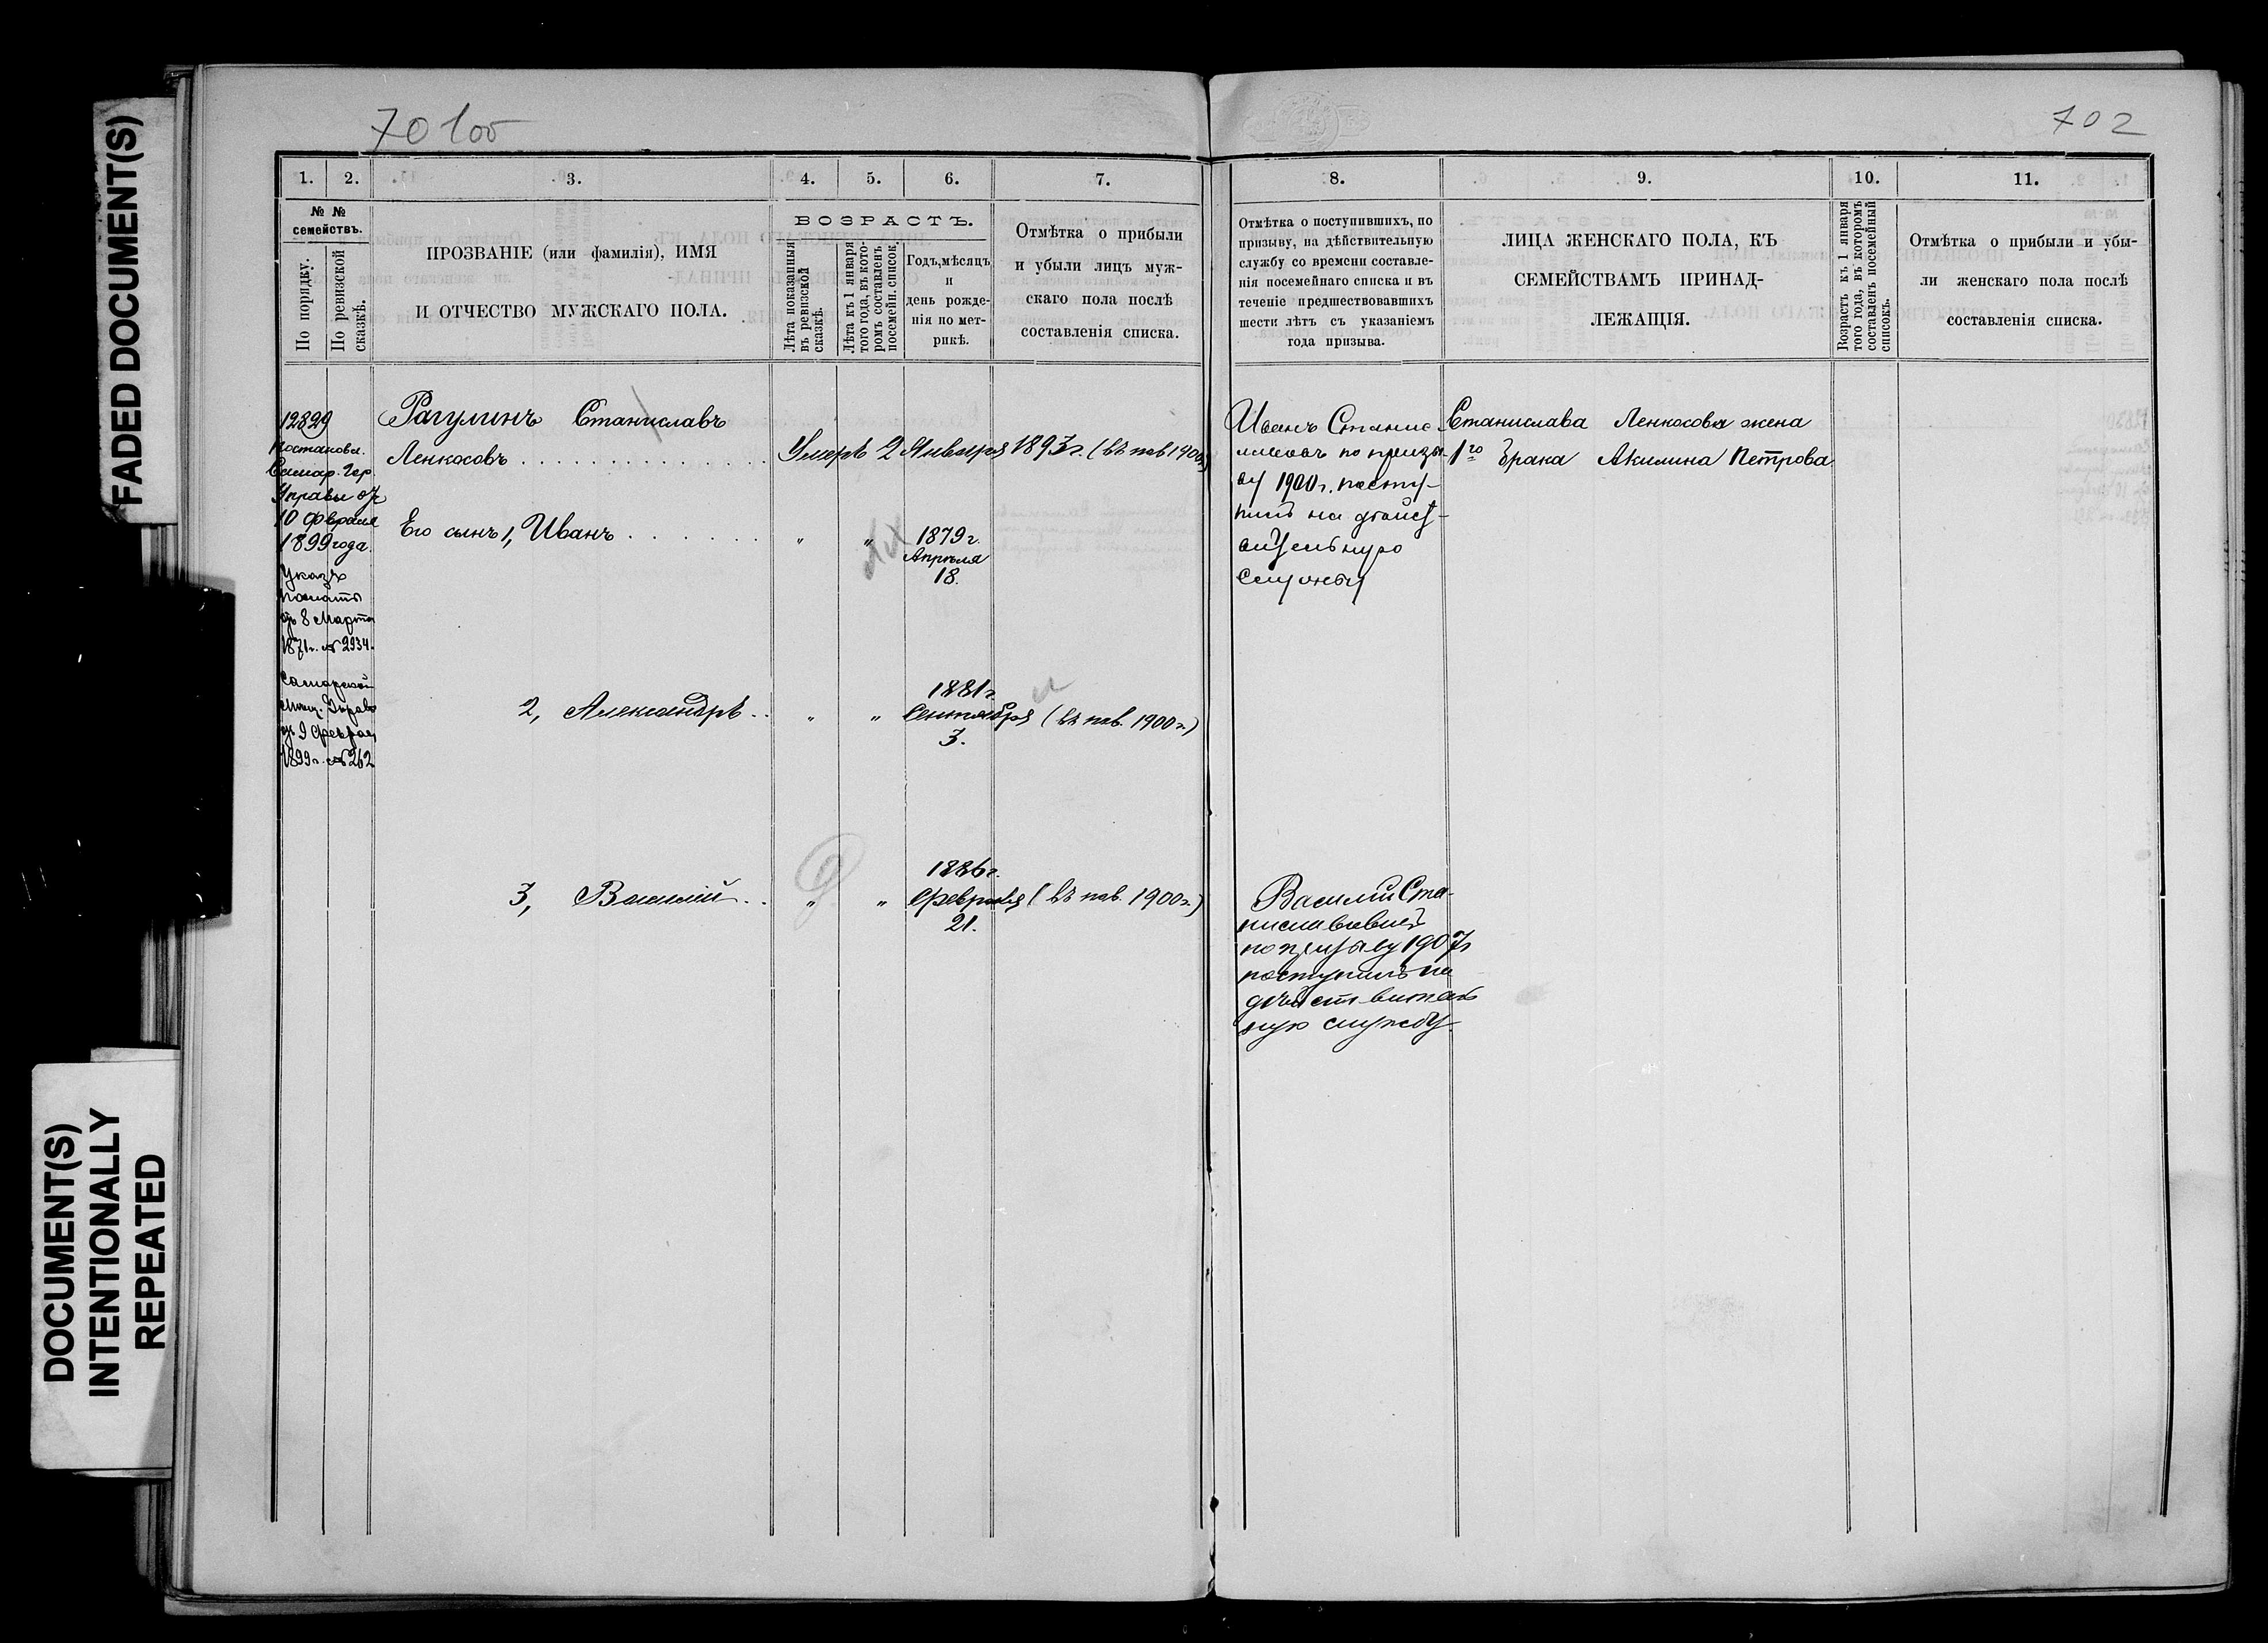 FADED DOCUMENT(S)
DOCUMENT(S)
INTENTIONALLY
REPEATED
702
1. 2. 3. 4. 5. 6. 7.
№ №
семействъ.
По порядку.
По ревизской
сказкѣ.
ПРОЗВАНІЕ (или фамилія), ИМЯ
И ОТЧЕСТВО МУЖСКАГО ПОЛА.
ВОЗРАСТЪ.
Лѣта показанныя
въ ревизской
сказкѣ.
Лѣта къ 1 января
того года, въ кото-
ромъ составленъ
посемейн. списокъ.
Годъ, мѣсяцъ
и
день рожде-
нія по мет-
рикѣ.
Отмѣтка о прибыли
и убыли лицъ муж-
скаго пола послѣ
составленія списка.
12829
Постановл.
Самар. Гор.
Управы отъ
10 февраля
1899 года.
Указъ
Палаты
отъ 8 Марта
1871 г. № 2934.
Самарской
Мѣщ. Управы
1899 г. № 262
Рагулинъ Станиславъ
Ленкосовъ
Умеръ 2 Января 1893 г. (въ пов 1900г)
Его сынъ 1, Иванъ " "
1879 г.
Апрѣля
18.
2, Александръ " "
1881 г.
Сентября (въ пов. 1900 г.)
3.
3, Василій " "
1886 г.
Февраля (въ пов. 1900 г.)
21.
8. 9. 10. 11.
Отмѣтка о поступившихъ, по
призыву, на дѣйствительную
службу со времени составле-
нія посемейнаго списка и въ
теченіе предшествовавшихъ
шести лѣтъ съ указаніемъ
года призыва.
ЛИЦА ЖЕНСКАГО ПОЛА, КЪ
СЕМЕЙСТВАМЪ ПРИНАД-
ЛЕЖАЩІЯ.
Возрастъ къ 1 января
того года, въ которомъ
составленъ посемейный
списокъ.
Отмѣтка о прибыли и убы-
ли женскаго пола послѣ
составленія списка.
Иванъ Станис
лавовъ по призы-
ву 1900 г. посту-
пилъ на дѣйст-
вительную
службу
Станислава Ленкосова жена
1го брака Акилина Петрова
Василій Ста-
ниславовичъ
по призыву 1907 г
поступилъ на
дѣйствитель
ную службу.